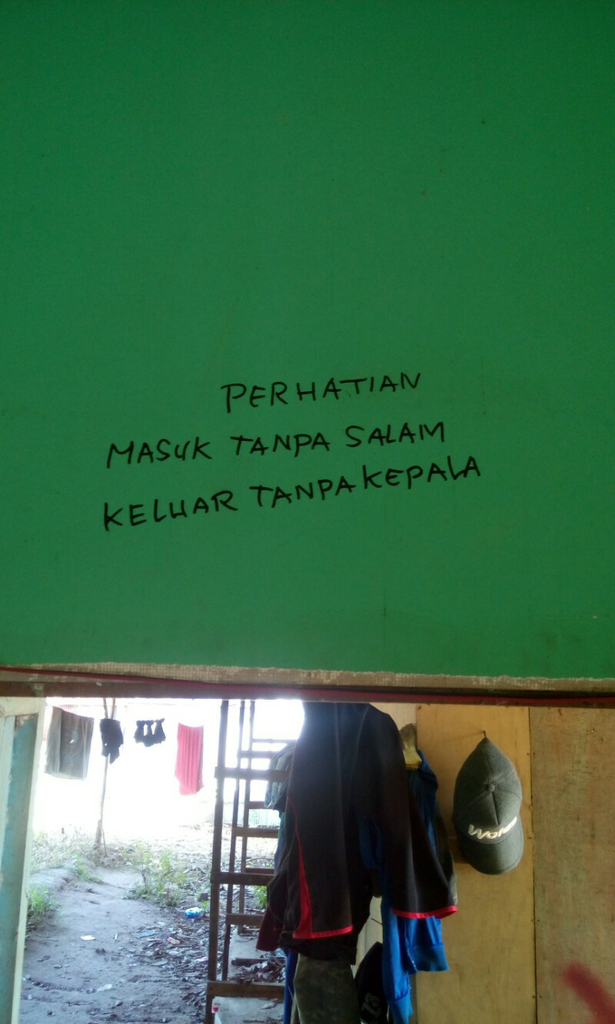 PERHATIAN
MASUK TANPA SALAM
KELUAR TANPA KEPALA